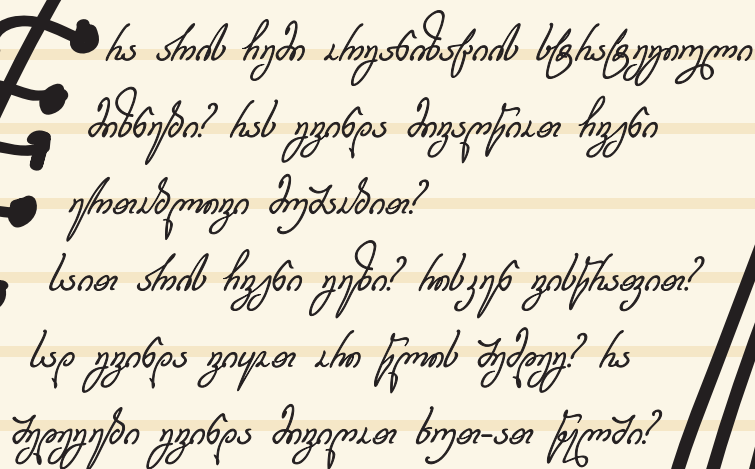 რა არის ჩემი ორგანიზაციის სტრატეგიული
მიზნები? რას გვინდა მივაღწიოთ ჩვენი
ერთობლივი მუშაობით?
საით არის ჩვენი გეზი? როსკენ ვისწრაფვით?
სად გვინდა ვიყოთ ორი წლის შემდეგ? რა
შედეგები გვინდა მივიღოთ ხუთ-ათ წელში?